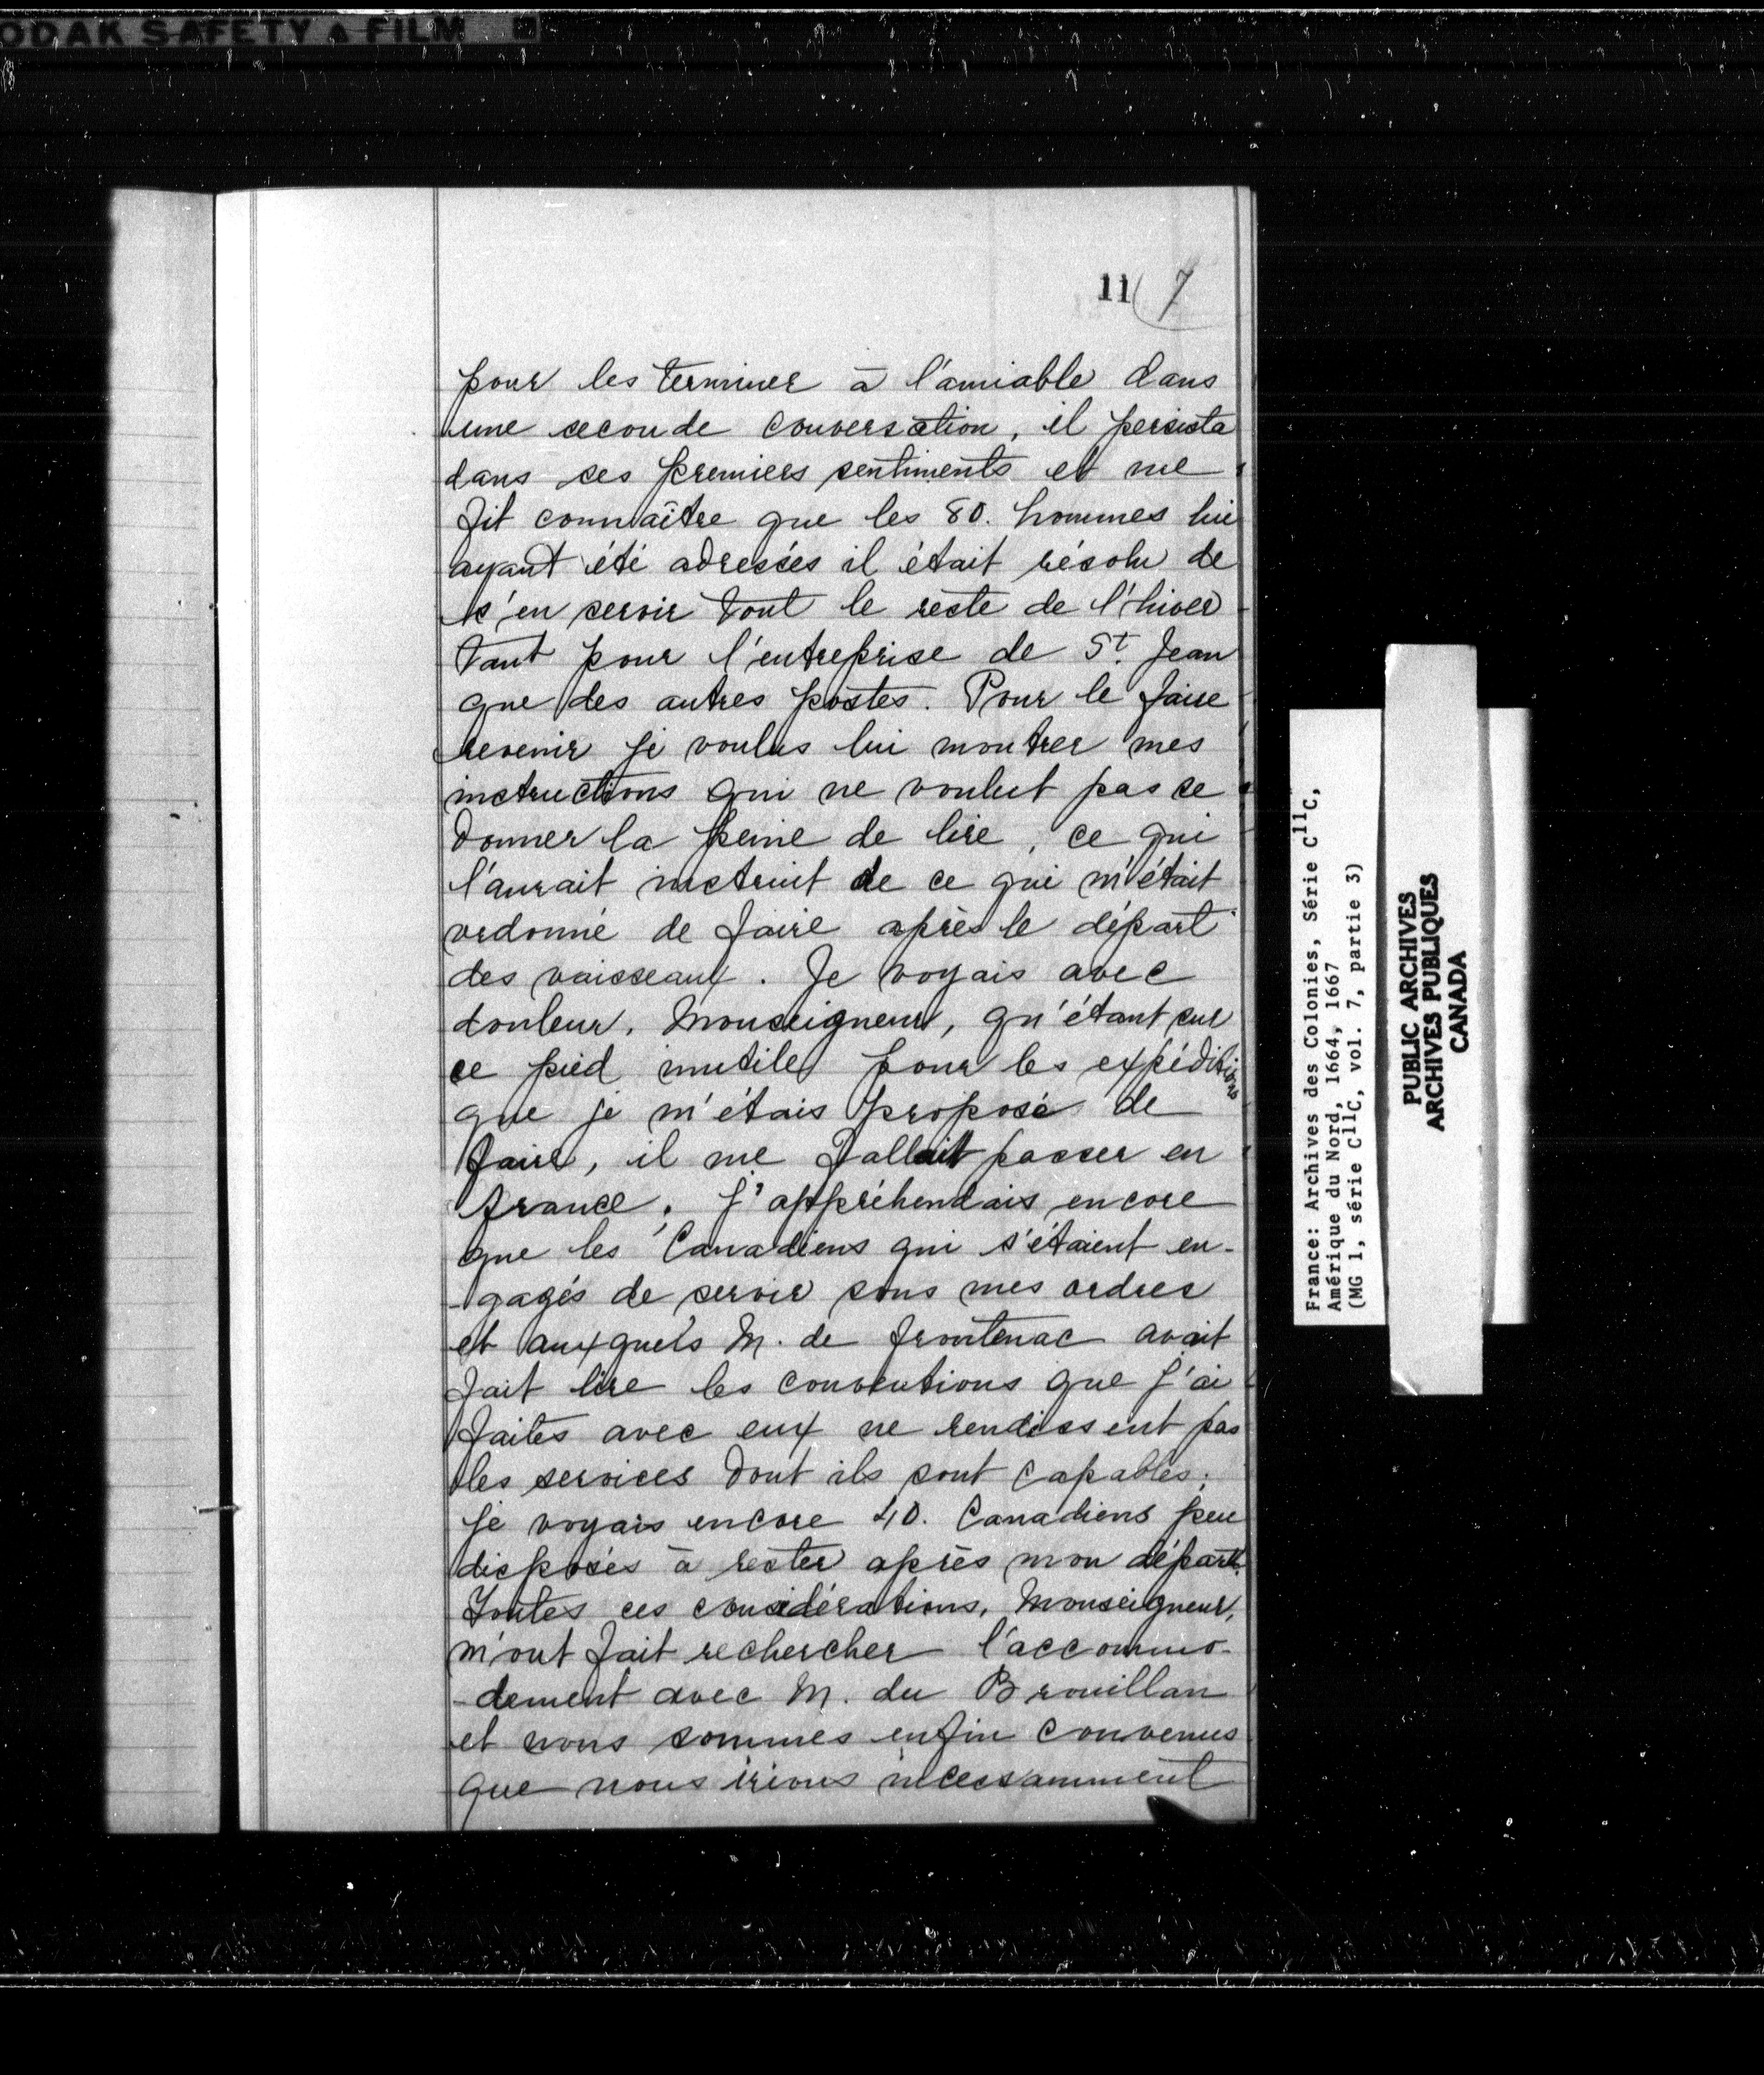 ODAK SAFETY FILM
11 7
pour les terminer à l'amiable dans
une seconde conversation, il persista
dans ses premiers sentiments et me
fit connaître que les 80. hommes lui
ayant été adressés il était résolu de
s'en servir tout le reste de l'hiver
tant pour l'entreprise de St. Jean
que des autres postes. Pour le faire
revenir je voulus lui montrer mes
instructions qui ne voulut pas se
donner la peine de lire, ce qui
l'aurait instruit de ce qui m'était
ordonné de faire après le départ
des vaisseaux. Je voyais avec
douleur, Monseigneur, qu'étant sur
ce pied inutile pour les expéditions
que je m'étais proposé de
faire, il me fallait passer en
france. J'appréhendais encore
que les Canadiens qui s'étaient en-
-gagés de servir sous mes ordres
et auxquels M. de frontenac avait
fait lire les conventions que j'ai
faites avec eux ne rendissent pas
les services dont ils sont capables.
Je voyais encore 40. Canadiens peu
disposés à rester après mon départ.
Toutes ces considérations, Monseigneur,
m'ont fait rechercher l'accommo-
-dement avec M. du Brouillan
et nous sommes enfin convenus
que nous irions incessamment
France: Archives des Colonies, Série C11C,
Amérique du Nord, 1664, 1667
(MG 1, série C11C, vol. 7, partie 3)
PUBLIC ARCHIVES
ARCHIVES PUBLIQUES
CANADA